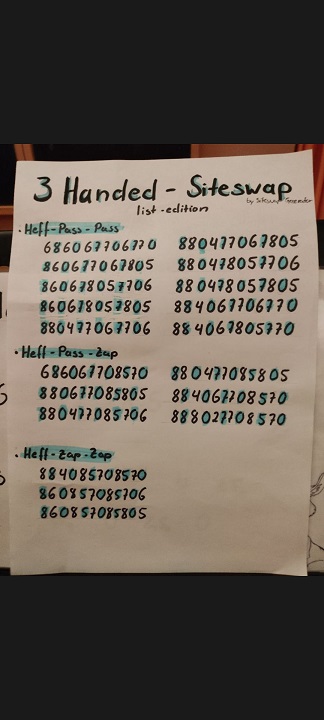 3 Handed - Siteswap
list-edition
• Heff-Pass-Pass
686067706770 880477067805
860677067805 880478057706
860678057706 880478057805
860678057805 884067706770
880477067706 884067805770
• Heff-Pass-Zap
686067708570 880477085805
860677085805 884067708570
880477085706 888027708570
• Heff-Zap-Zap
884085708570
860857085706
860857085805